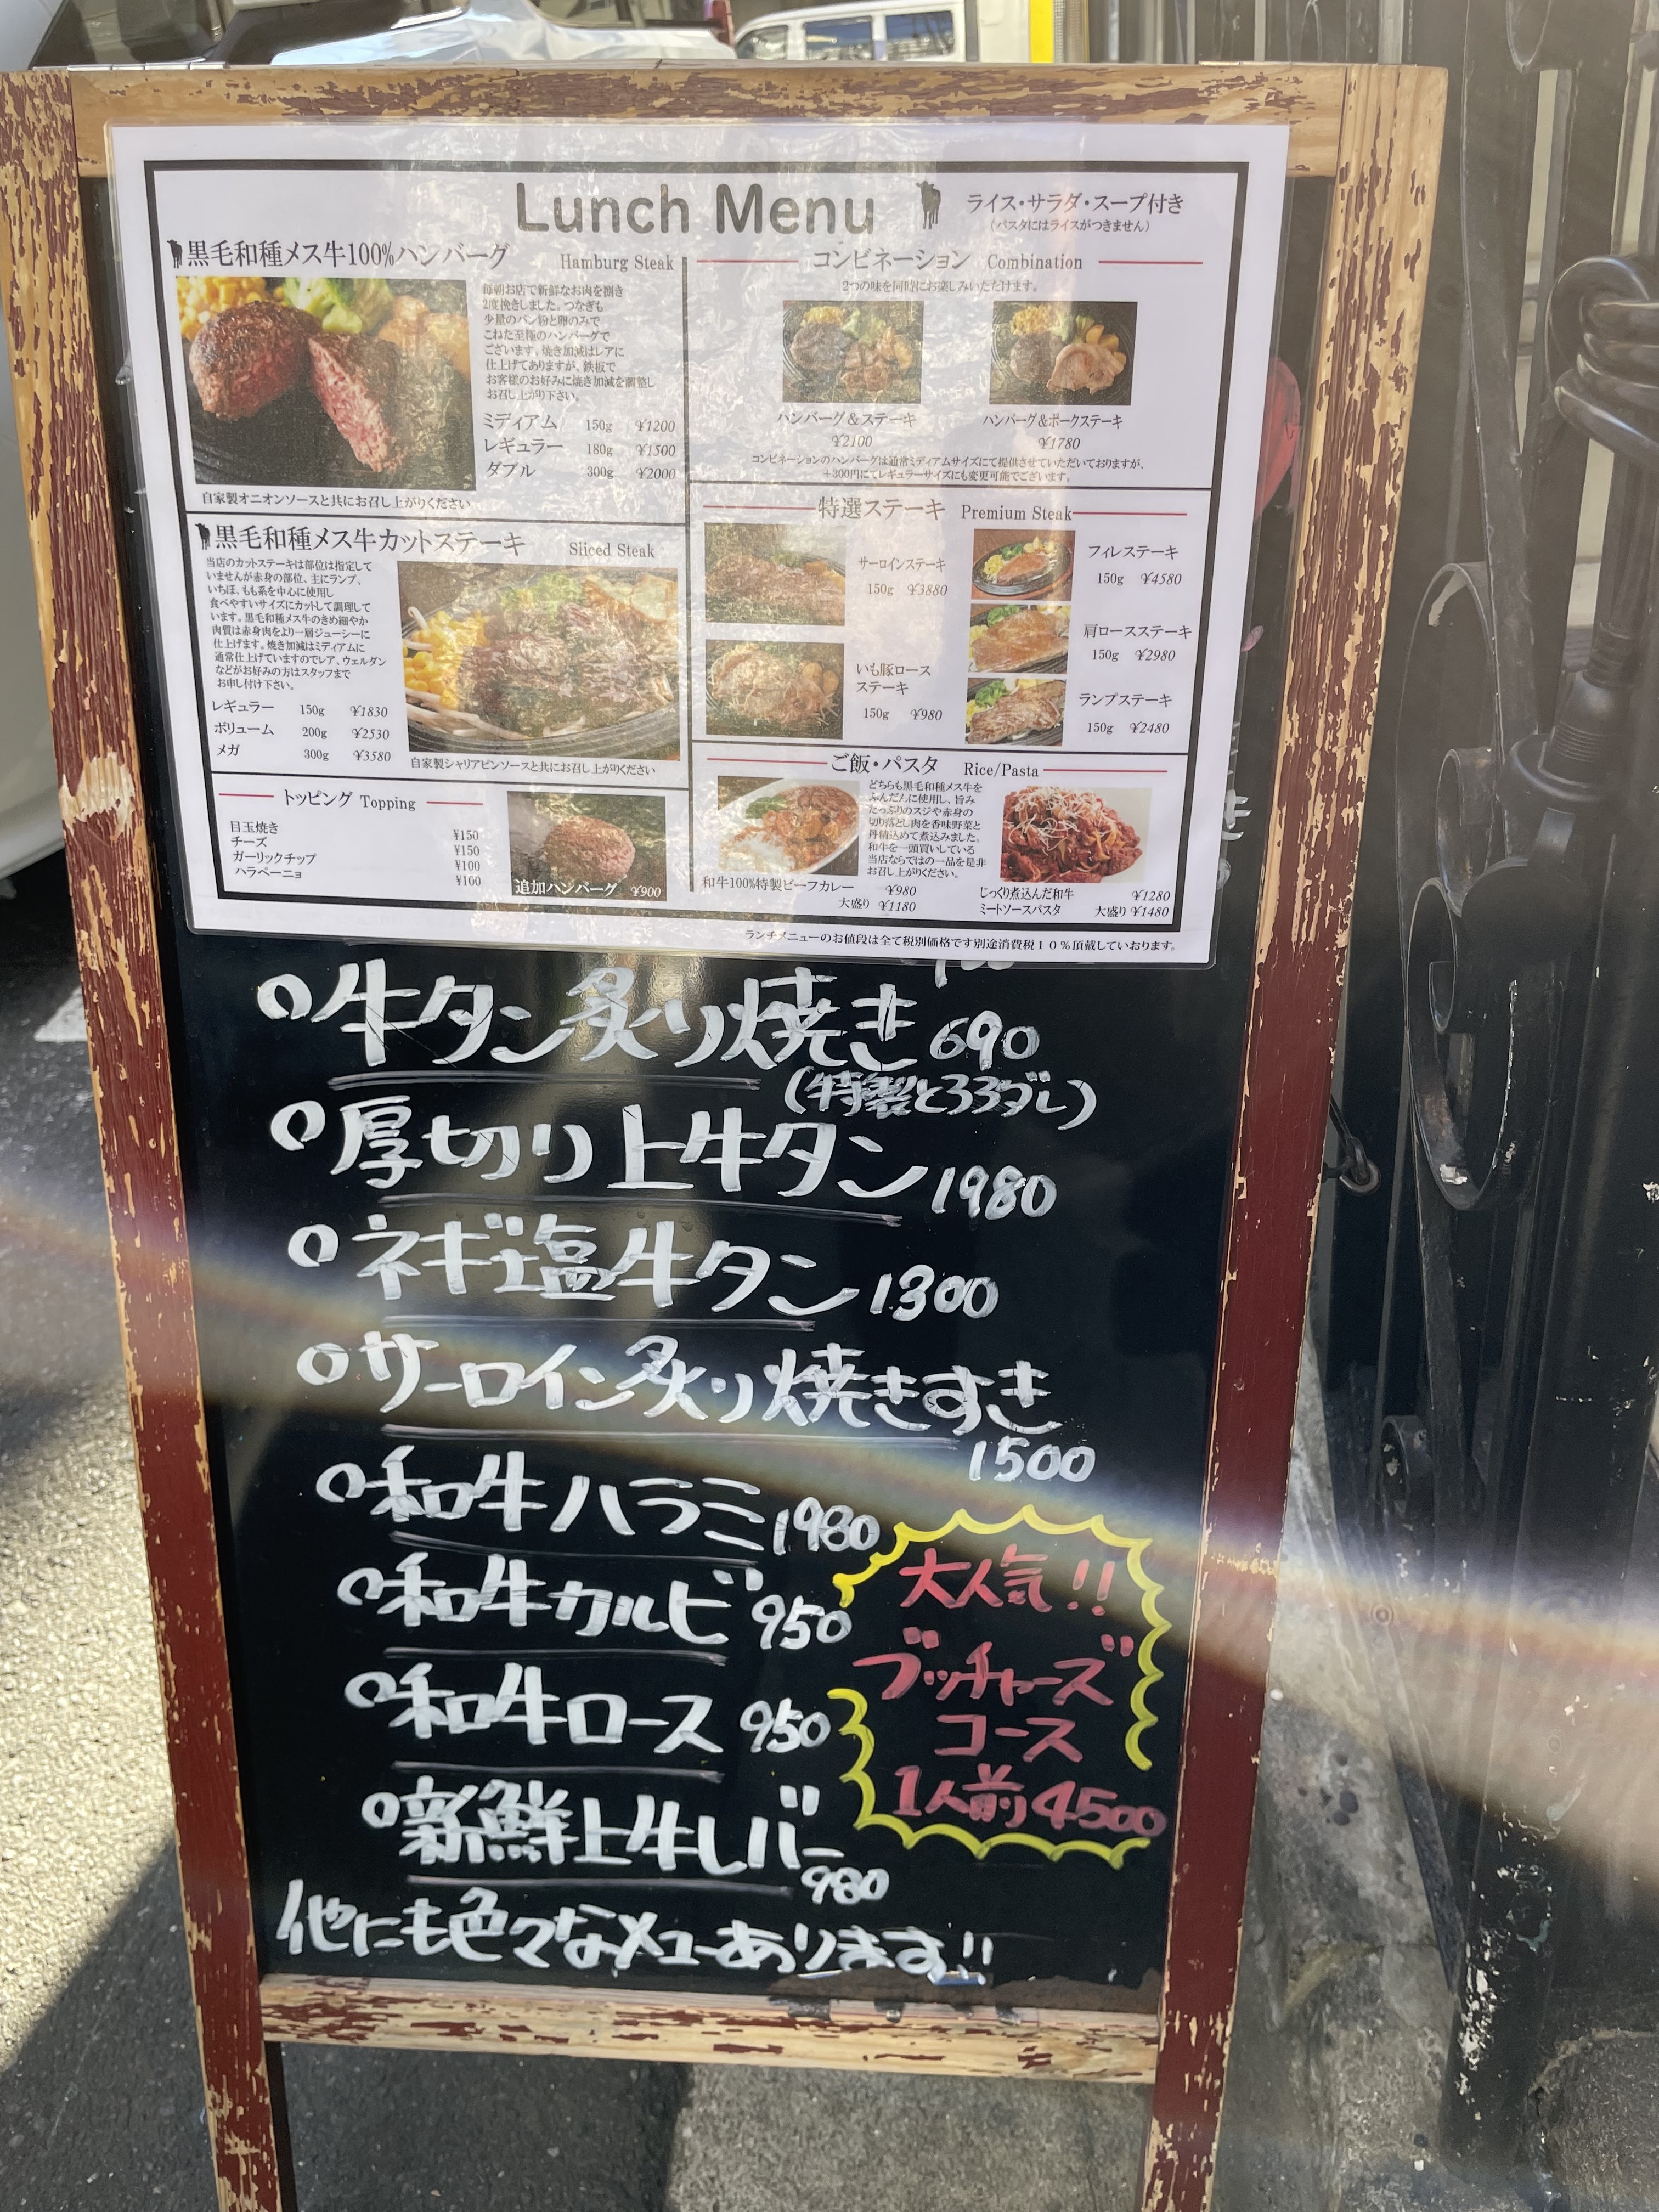 Lunch Menu
ライス・サラダ・スープ付き
(パスタにはライスがつきません)
黒毛和種メス牛100%ハンバーグ Hamburg Steak
毎朝お店で新鮮なお肉を捌き
2度挽きしました。つなぎも
少量のパン粉と卵のみで
こねた至極のハンバーグで
ございます。焼き加減はレアに
仕上げてありますが、鉄板で
お客様のお好みに焼き加減を調整し
お召し上がり下さい。
ミディアム 150g ¥1200
レギュラー 180g ¥1500
ダブル 300g ¥2000
自家製オニオンソースと共にお召し上がりください
黒毛和種メス牛カットステーキ Sliced Steak
当店のカットステーキは部位は指定して
いませんが赤身の部位、主にランプ、
いちぼ、もも系を中心に使用し
食べやすいサイズにカットして調理して
います。黒毛和種メス牛のきめ細やか
肉質は赤身肉をより一層ジューシーに
仕上げます。焼き加減はミディアムに
通常仕上げていますのでレア、ウェルダン
などがお好みの方はスタッフまで
お申し付け下さい。
レギュラー 150g ¥1830
ボリューム 200g ¥2530
メガ 300g ¥3580
自家製シャリアピンソースと共にお召し上がりください
トッピング Topping
目玉焼き ¥150
チーズ ¥150
ガーリックチップ ¥100
ハラペーニョ ¥100
追加ハンバーグ ¥900
コンビネーション Combination
2つの味を同時にお楽しみいただけます。
ハンバーグ&ステーキ
¥2100
ハンバーグ&ポークステーキ
¥1780
コンビネーションのハンバーグは通常ミディアムサイズにて提供させていただいておりますが、
+300円にてレギュラーサイズにも変更可能でございます。
特選ステーキ Premium Steak
サーロインステーキ
150g ¥3880
フィレステーキ
150g ¥4580
肩ロースステーキ
150g ¥2980
いも豚ロース
ステーキ
150g ¥980
ランプステーキ
150g ¥2480
ご飯・パスタ Rice/Pasta
どちらも黒毛和種メス牛を
ふんだんに使用し、旨み
たっぷりのスジや赤身の
切り落とし肉を香味野菜と
丹精込めて煮込みました。
和牛を一頭買いしている
当店ならではの一品を是非
お召し上がりください。
和牛100%特製ビーフカレー ¥980
大盛り ¥1180
じっくり煮込んだ和牛 ¥1280
ミートソースパスタ 大盛り ¥1480
ランチメニューのお値段は全て税別価格です別途消費税10%頂戴していおります。
牛タン炙り焼き 690
(特製とろろダレ)
厚切り上牛タン 1980
ネギ塩牛タン 1300
サーロイン炙り焼きすき
1500
和牛ハラミ 1980
和牛カルビ 950
和牛ロース 950
新鮮上牛レバー
980
大人気!!
ブッチャーズ
コース
1人前4500
他にも色々なメニューあります!!